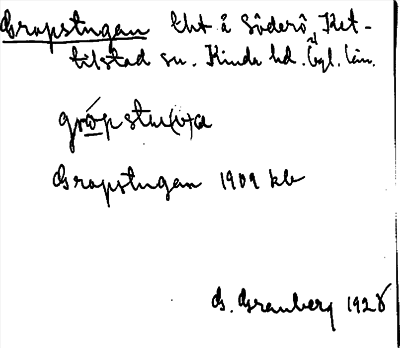 Gropstugan lht å Söderö, Ket-
tilstad sn. Kinda hd. Ögl. län.
grópstu(v)a
Gropstugan 1909 kb
G. Granberg 1928